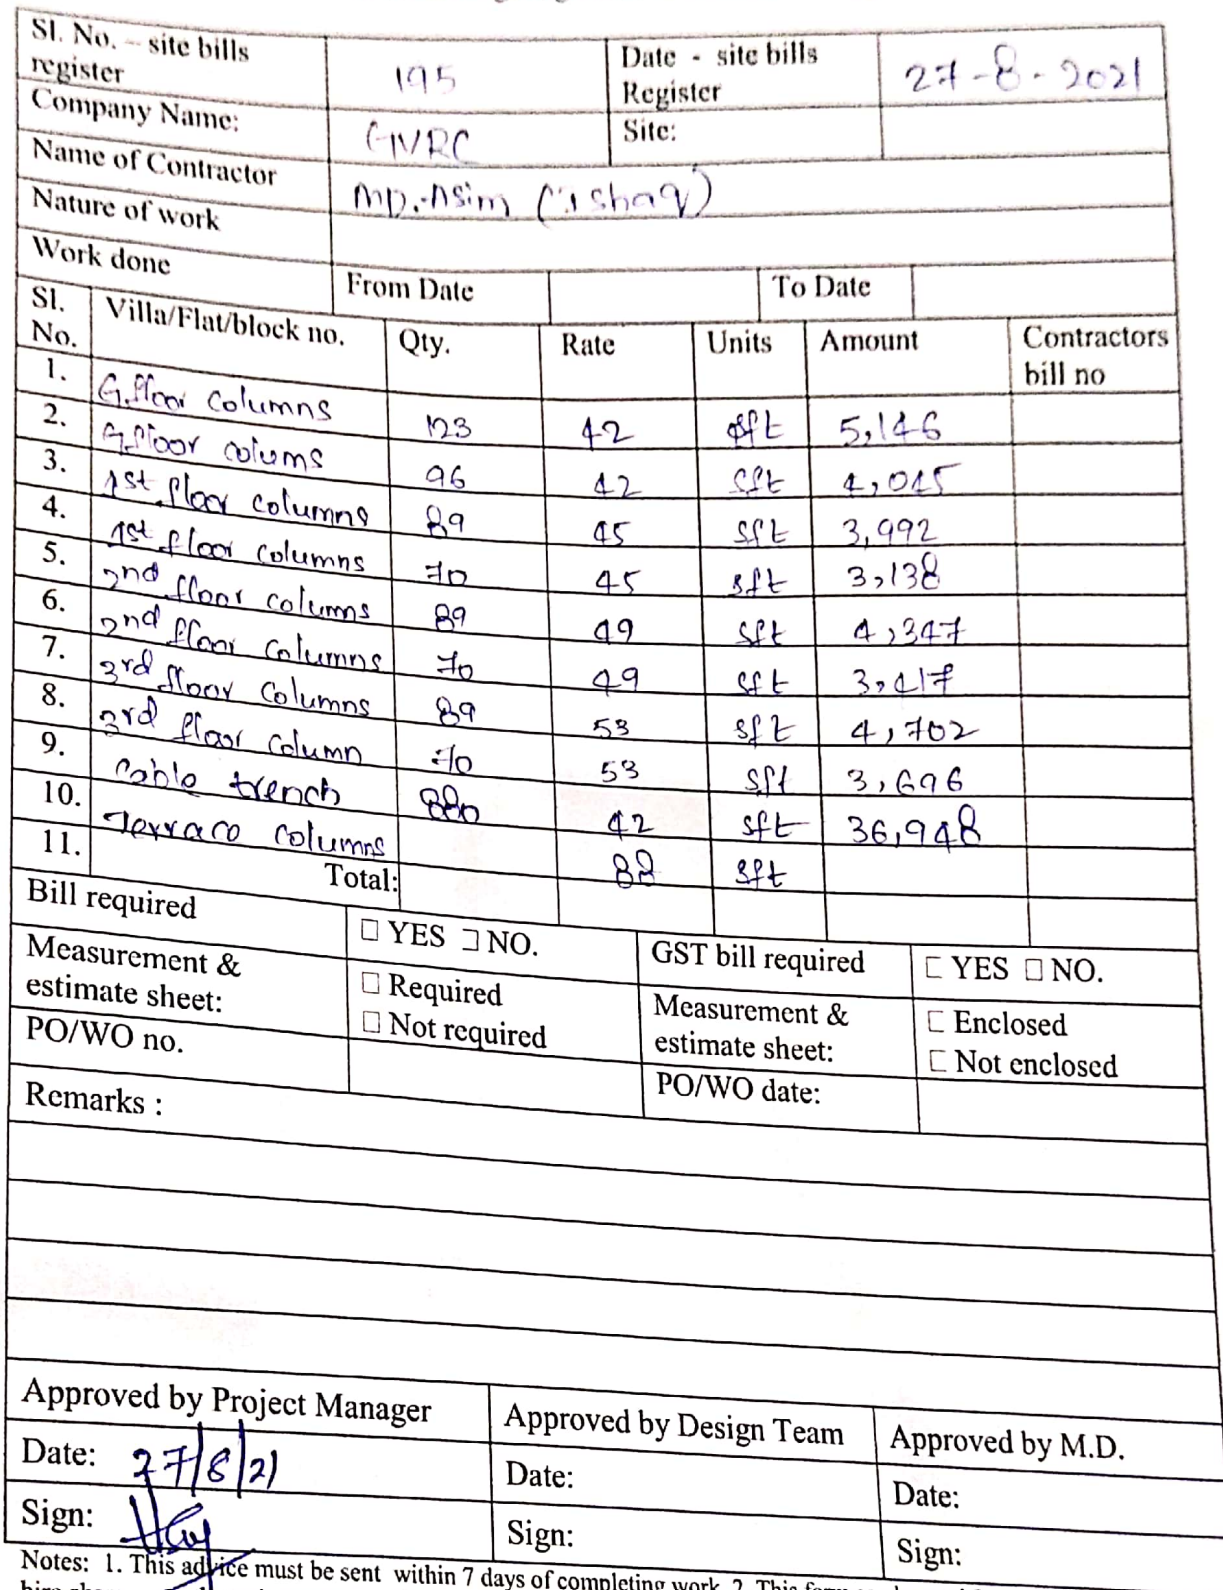 Sl. No. – site bills register 195 Date - site bills Register 27-8-2021
Company Name: GVRC Site:
Name of Contractor MD.Asim (Ishaq)
Nature of work
Work done From Date To Date
Sl. No. Villa/Flat/block no. Qty. Rate Units Amount Contractors bill no
1. G.floor columns 123 42 sft 5,146
2. G.floor colums 96 42 sft 4,015
3. 1st floor columns 89 45 sft 3,992
4. 1st floor columns 70 45 sft 3,138
5. 2nd floor columns 89 49 sft 4,347
6. 2nd floor columns 70 49 sft 3,417
7. 3rd floor columns 89 53 sft 4,702
8. 3rd floor column 70 53 sft 3,696
9. cable trench 880 42 sft 36,948
10. Terrace columns 88 sft
11. Total:
Bill required ☐ YES ☐ NO. GST bill required ☐ YES ☐ NO.
Measurement & estimate sheet: ☐ Required ☐ Not required Measurement & estimate sheet: ☐ Enclosed ☐ Not enclosed
PO/WO no. PO/WO date:
Remarks :
Approved by Project Manager Approved by Design Team Approved by M.D.
Date: 27/8/21 Date: Date:
Sign: Sign: Sign:
Notes: 1. This advice must be sent within 7 days of completing work. 2. This